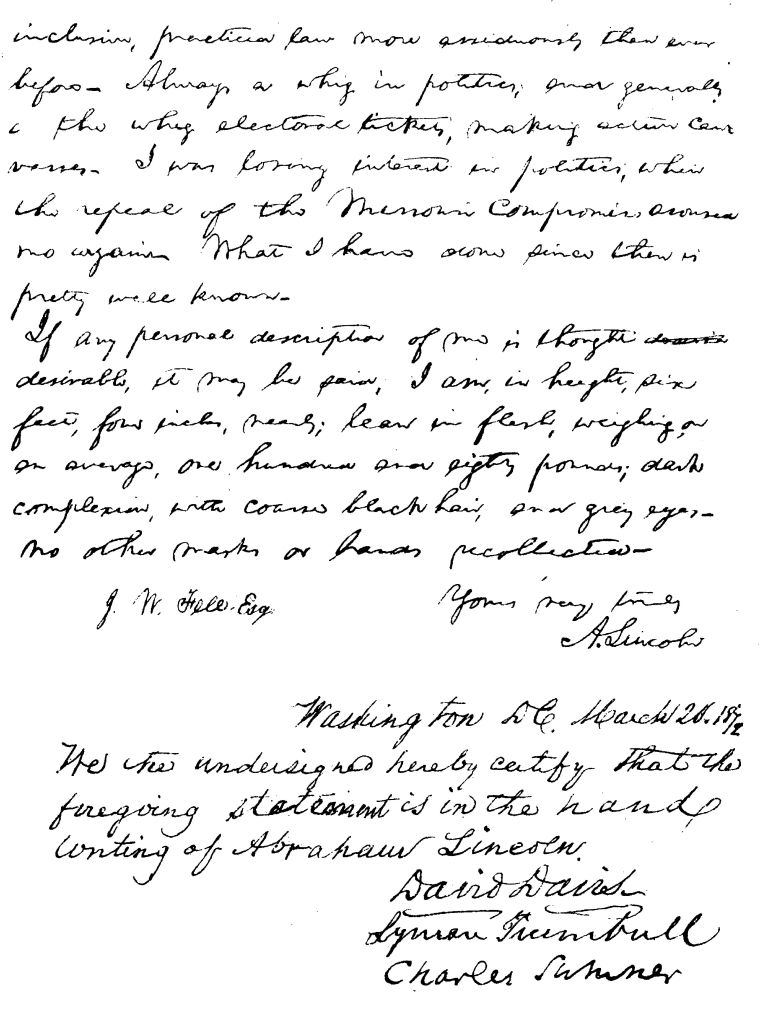 inclusive, practiced law more assiduously than ever
before - Always a whig in politics; and generally
the whig electoral tickets, making active can
vasses - I was losing interest in politics, when
the repeal of the Missouri Compromise aroused
me again. What I have done since then is
pretty well known -
If any personal description of me is thought
desirable, it may be said, I am, in height, six
feet, four inches, nearly; lean in flesh, weighing, on
an average, one hundred and eighty pounds; dark
complexion, with coarse black hair, and grey eyes -
no other marks or brands recollected -
J. W. Fell, Esq.
Yours very truly
A. Lincoln
Washington DC. March 20. 1872
We the undersigned hereby certify that the
foregoing statement is in the hand
writing of Abraham Lincoln.
David Davis
Lyman Trumbull
Charles Sumner